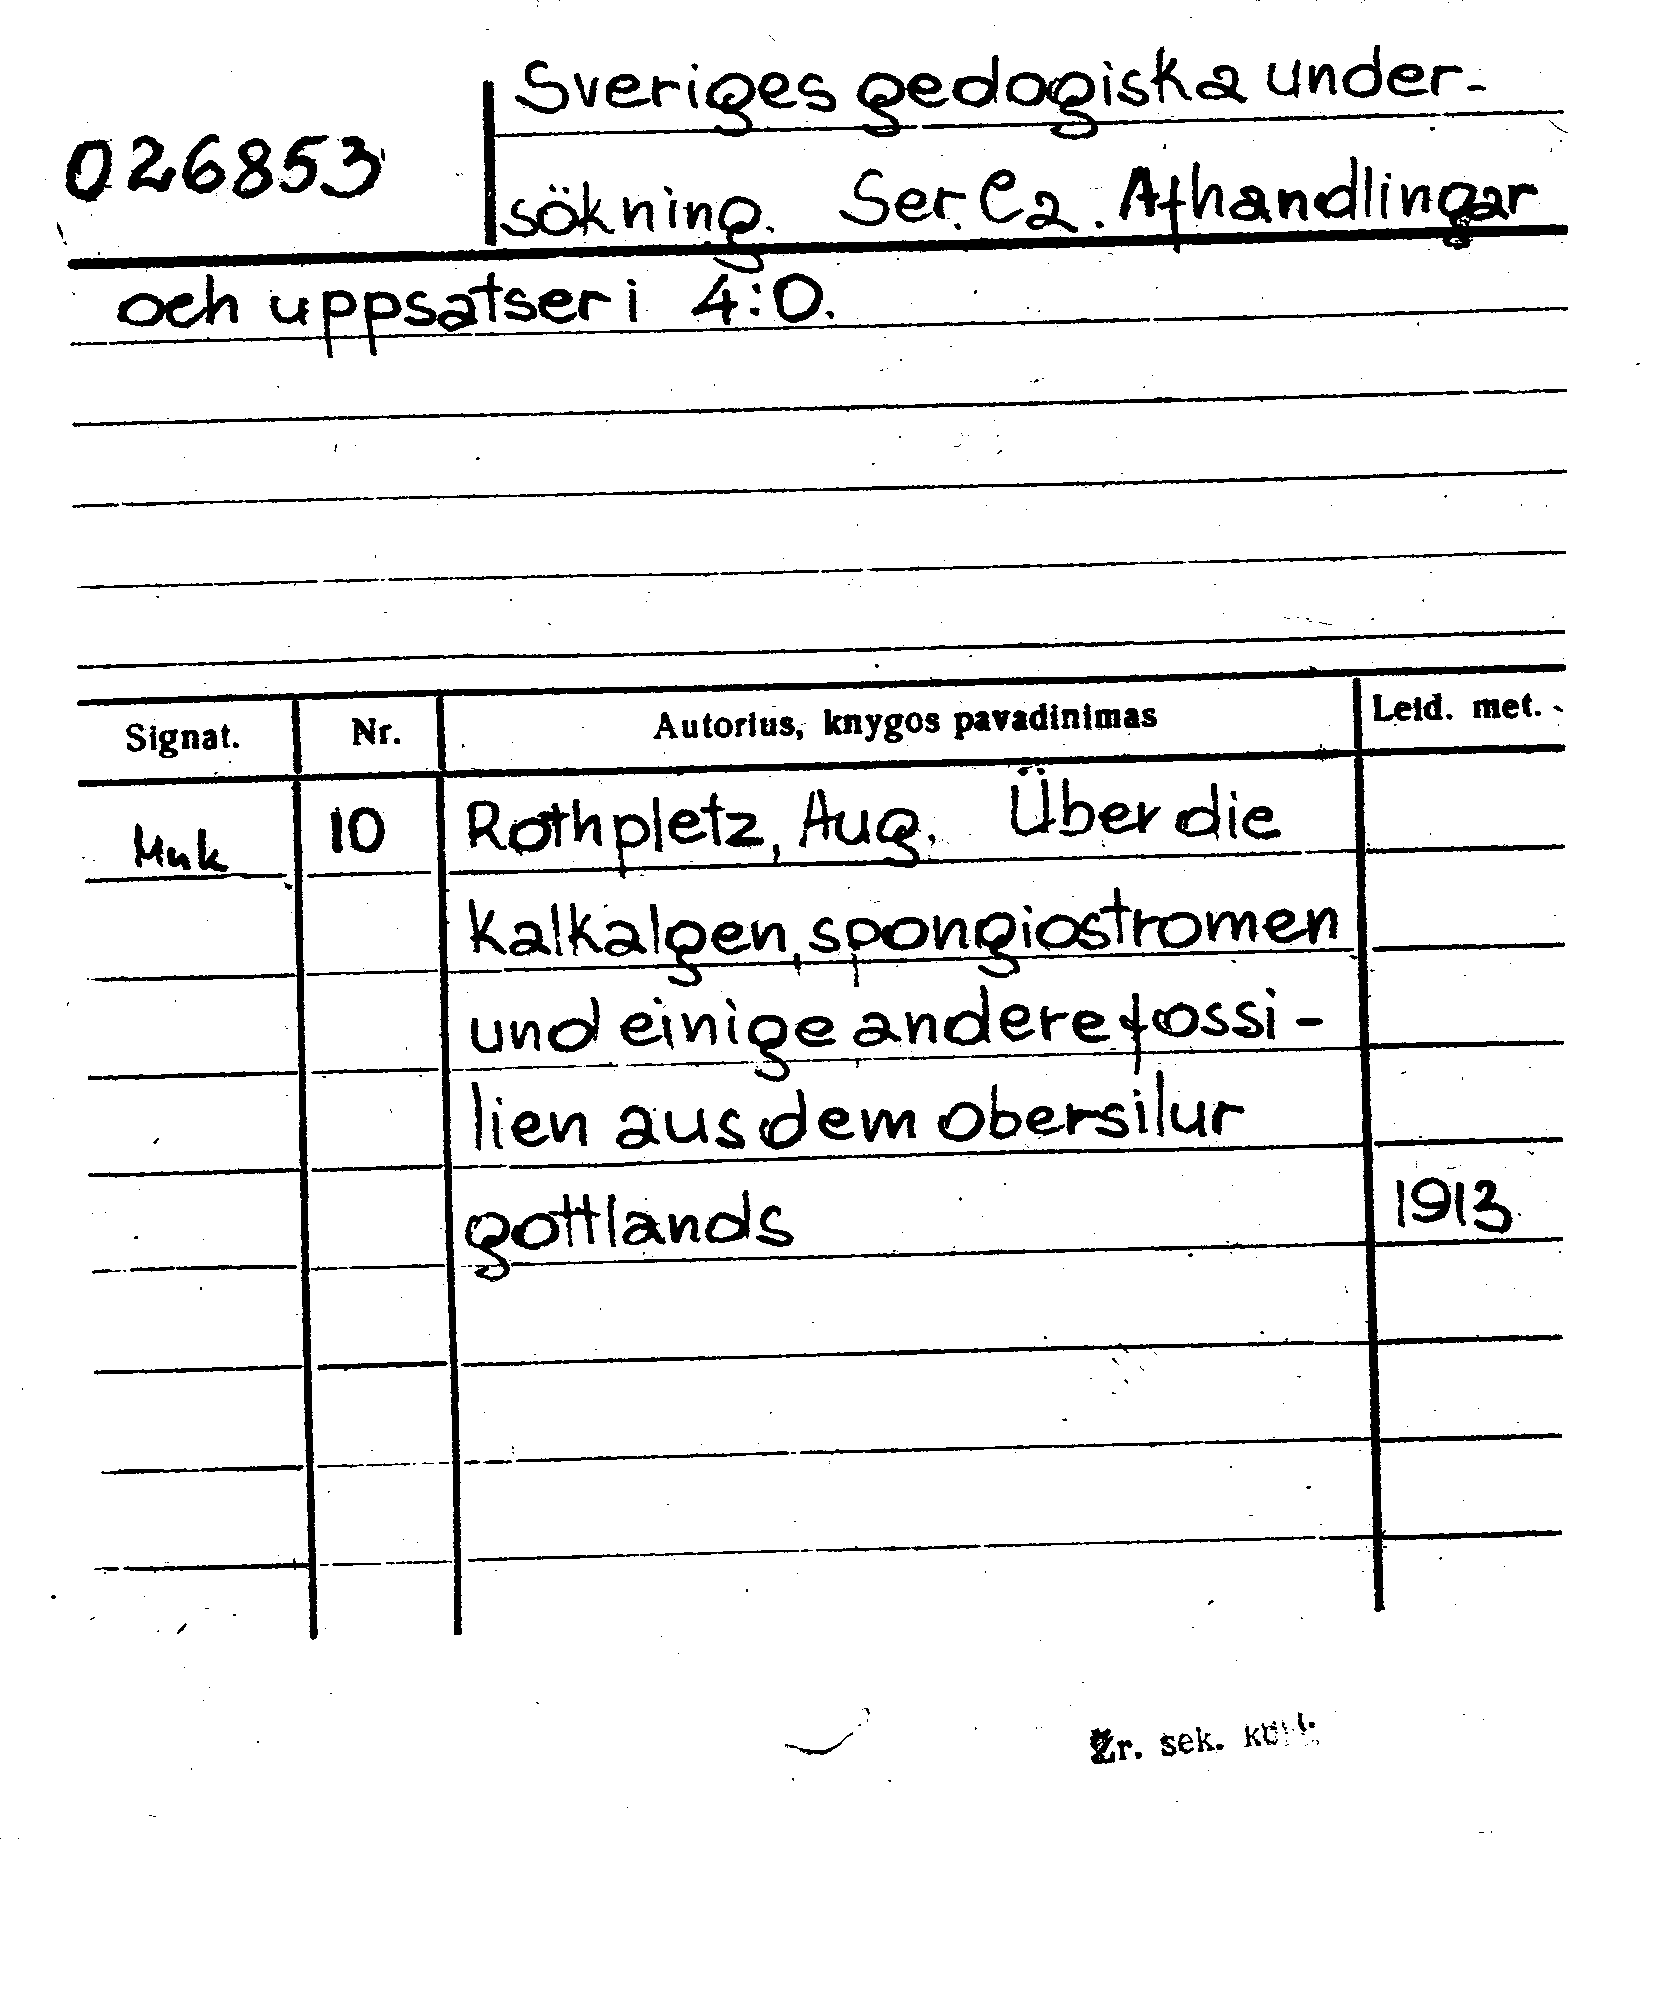 Sveriges gedogiska under-
026853
sökning. Ser. Ca. Afhandlingar
och uppsatser i 4:0.
Signat. Nr. Autorius, knygos pavadinimas Leid. met.
Mnk 10 Rothpletz, Aug. Über die
kalkalgen, spongiostromen
und einige andere fossi-
lien aus dem obersilur
gottlands 1913
Žr. sek. kort.